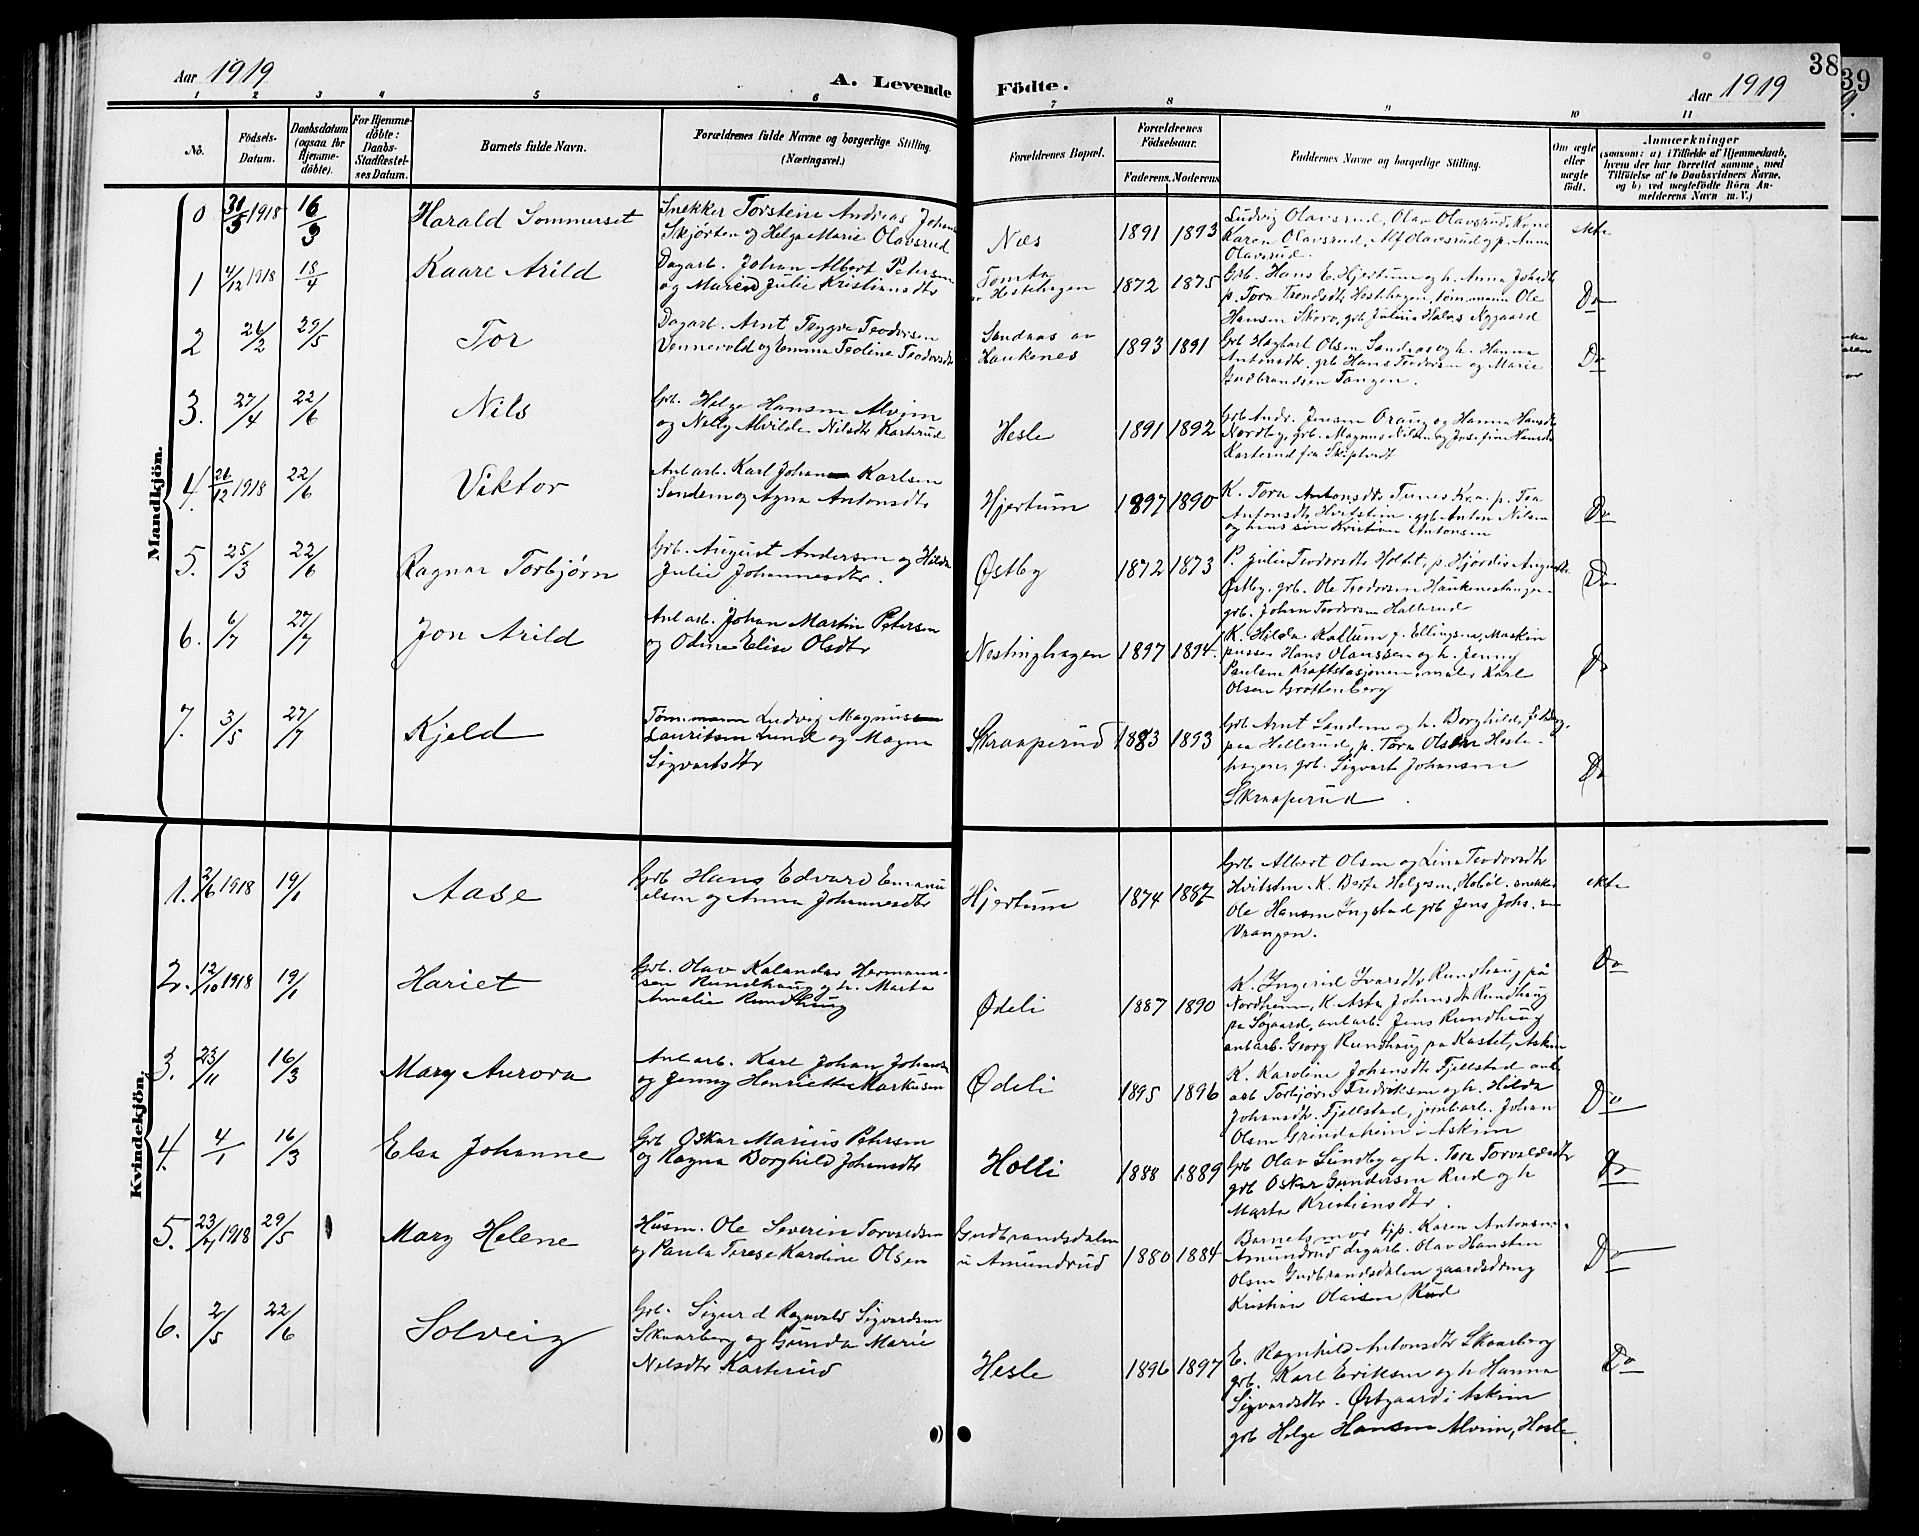 Aar 1919
A. Levende Födte.
Aar 1919
38
39
1 2 3 4 5 6 7 8 9 10 11
No.
Födsels-Datum.
Daabsdatum (ogsaa for Hjemmedöbte).
For Hjemmedöbte: Daabs-Stadfæstelses Datum.
Barnets fulde Navn.
Forældrenes fulde Navne og borgerlige Stilling.
(Næringsvei.)
Forældrenes Bopæl.
Forældrenes Födselsaar.
Faderens. Moderens.
Faddernes Navne og borgerlige Stilling.
Om ægte eller uægte födt.
Anmærkninger
(saasom: a) i Tilfælde af Hjemmedaab, hvem der har forrettet samme, med Tilföielse af to Daabsvidners Navne, og b) ved uægtefödte Börn Anmelderens Navn m. V.)
Mandkjön.
0 31/3 1918 16/3 Harald Sommerset
Snekker Torstein Andreas Johans
Skjørten og Helga Marie Olavsrud
Næs 1891 1893
Ludvig Olavsrud, Olav Olavsrud, Kone
Karen Olavsrud, Alf Olavsrud og p. Anna
Olavsrud.
ekte
1 4/12 1918 18/4 Kaare Arild
Dagarb. Johan Albert Petersen
og Maren Julie Kristiansdtr
Tomta
Hestehagen 1872 1875
Grb. Hans E. Hjertum og h. Anna Johsdtr
p. Tora Trondsdtr Hestehagen, tømmann Ole
Hansen Skorv, grb Julius Halvs Nygaard
Do
2 26/2 29/5 Tor
Dagarb. Arnt Trygve Teodorsen
Vennevold og Emma Teoline Teodorsdtr
Sandaas av
Haukenes 1893 1891
Grb Hagbart Olsen Sandaas og h. Hanna
Antonsdtr. grb Hans Teodorsen og Marie
Gudbrandsen Tangen.
Do
3. 27/4 22/6 Nils
Grb. Helge Hansen Alvim
og Nelly Alvilde Nilsdtr Karterud
Hesle 1891 1892
Grb Andr. Jensen Oraug og Hanna Hansdtr
Nordby, grb. Magnus Nilsen og Josefine Hansdtr
Karterud fra Skiptvedt
4. 26/12 1918 22/6 Viktor
Anlarb. Karl Johan Karlsen
Sandem og Agna Antonsdtr
Hjertum 1897 1890
K. Tora Antonsdtr Tunes Kra. p. Tea
Antonsdtr Hvitstein, grb. Anton Nilsen
og hans søn Kristian Antonsen
Do
5. 25/3 22/6 Ragnar Torbjørn
Grb. August Andersen og Hilda
Julie Johannesdtr.
Østby 1872 1873
P. Julie Teodorsdtr Holtet, p. Hjørdis Augustdtr
Østby, grb. Ole Teodorsen Haukenestangen
grb. Johan Teodorsen Hallerud
Do
6. 6/7 27/7 Jon Arild
Anlarb. Johan Martin Petersen
og Odine Elise Olsdtr
Nestinghagen 1897 1894.
K. Hilda Kaltum f. Ellingsen, Maskin
pusser Hans Olaussen og h. Jenny
Paulsen Kraftstasjonen, maler Karl
Olsen Grottenberg
Do
7. 3/5 27/7 Kjeld
Tømmermann Ludvig Magnus
Lauritsen Lund og Magna
Sigvartsdtr
Skraaperud 1883 1893
Grb Arnt Sandem og h. Borghild,
paa Hellerud, p. Tora Olsen Heste-
hagen, grb. Sigvart Johansen
Skraaperud.
Do
Kvindekjön.
1. 2/6 1918 19/1 Aase
Grb Hans Edvard Emanu
elsen og Anna Johannesdtr
Hjertum 1874 1887
Grb Albert Olsen og Lina Teodorsdtr
Hvitsten. K. Berta Helgesen, Hobøl. snekker
Ole Hansen Ingstad, grb Jens Johs.
Vrangen.
ekte
2. 12/10 1918 19/1 Hariet
Grb. Olav Kalander Hermann-
sen Rundhaug og h. Marta
Amalie Rundhaug
Ødeli 1887 1890
K. Ingerid Ivarsdtr Rundhaug på
Nordheim, K. Asta Johnsdtr Rundhaug
pa Søgaard, anlarb. Jens Rundhaug
anlarb. Georg Rundhaug pa Kastet, Askim
Do
3. 23/11 16/3 Mary Aurora
Anlarb. Karl Johan Johans
og Jenny Henriette Markusen
Ødeli 1895 1896
K. Karoline Johansdtr Fjellstad anl.
arb Torbjørn Fredriksen og h. Hilda
Johansdtr. Fjellstad, jernbarb. Johan
Olsen Grindaheim i Askim
Do
4. 4/1 16/3 Elsa Johanne
Grb Oskar Marius Petersen
og Ragna Borghild Johansdtr
Holli 1888 1889
Grb Olav Sundby og h. Tora Torvaldsdtr
grb Oskar Gundersen Rud og h
Marta Kristiansdtr.
Do
5. 23/7 1918 29/5 Mary Helene
Husm. Ole Severin Torvaldsen
og Paula Terese Kardine Olsen
Gudbrandsdalen
u Amundrud 1880 1884
Barnets mor hjp. Karen Antonsen
Amundrud dagarb. Olav Hansten
Olsen Gudbrandsdalen gaardsdreng
Kristian Olausen Rud
Do
6. 2/5 22/6 Solveig
Grb. Sigurd Ragnvald Sigvardsen
Skaarberg og Gunda Marie
Nilsdtr Karterud
Hesle 1896 1897
E. Ragnhild Antonsdtr Skaarberg
grb. Karl Eriksen og h Hanna
Sigvardsdtr. Østgaard i Askim
grb Helge Hansen Alvim, Hesle.
Do